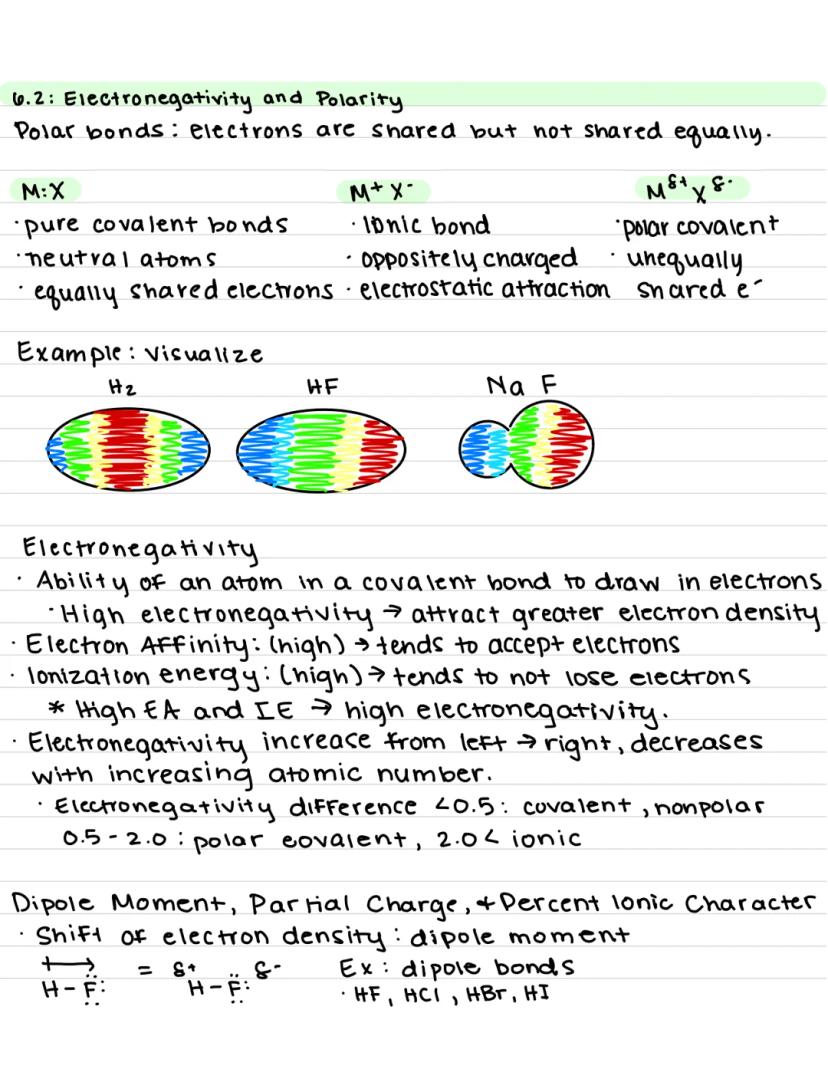 6.2: Electronegativity and Polarity
Polar bonds: electrons are shared but not shared equally.
M:X M⁺ X⁻ Mᵟ⁺ Xᵟ⁻
· pure covalent bonds · ionic bond · polar covalent
· neutral atoms · oppositely charged · unequally
· equally shared electrons · electrostatic attraction shared e⁻
Example: visualize
H₂ HF Na F
Electronegativity
· Ability of an atom in a covalent bond to draw in electrons
· High electronegativity → attract greater electron density
· Electron Affinity: (high) → tends to accept electrons
· Ionization energy: (high) → tends to not lose electrons
* High EA and IE → high electronegativity.
· Electronegativity increase from left → right, decreases
with increasing atomic number.
· Electronegativity difference <0.5: covalent, nonpolar
0.5 - 2.0: polar covalent, 2.0< ionic
Dipole Moment, Partial Charge, + Percent Ionic Character
· Shift of electron density: dipole moment
= δ+ δ- Ex: dipole bonds
H-F: H-F: · HF, HCl, HBr, HI